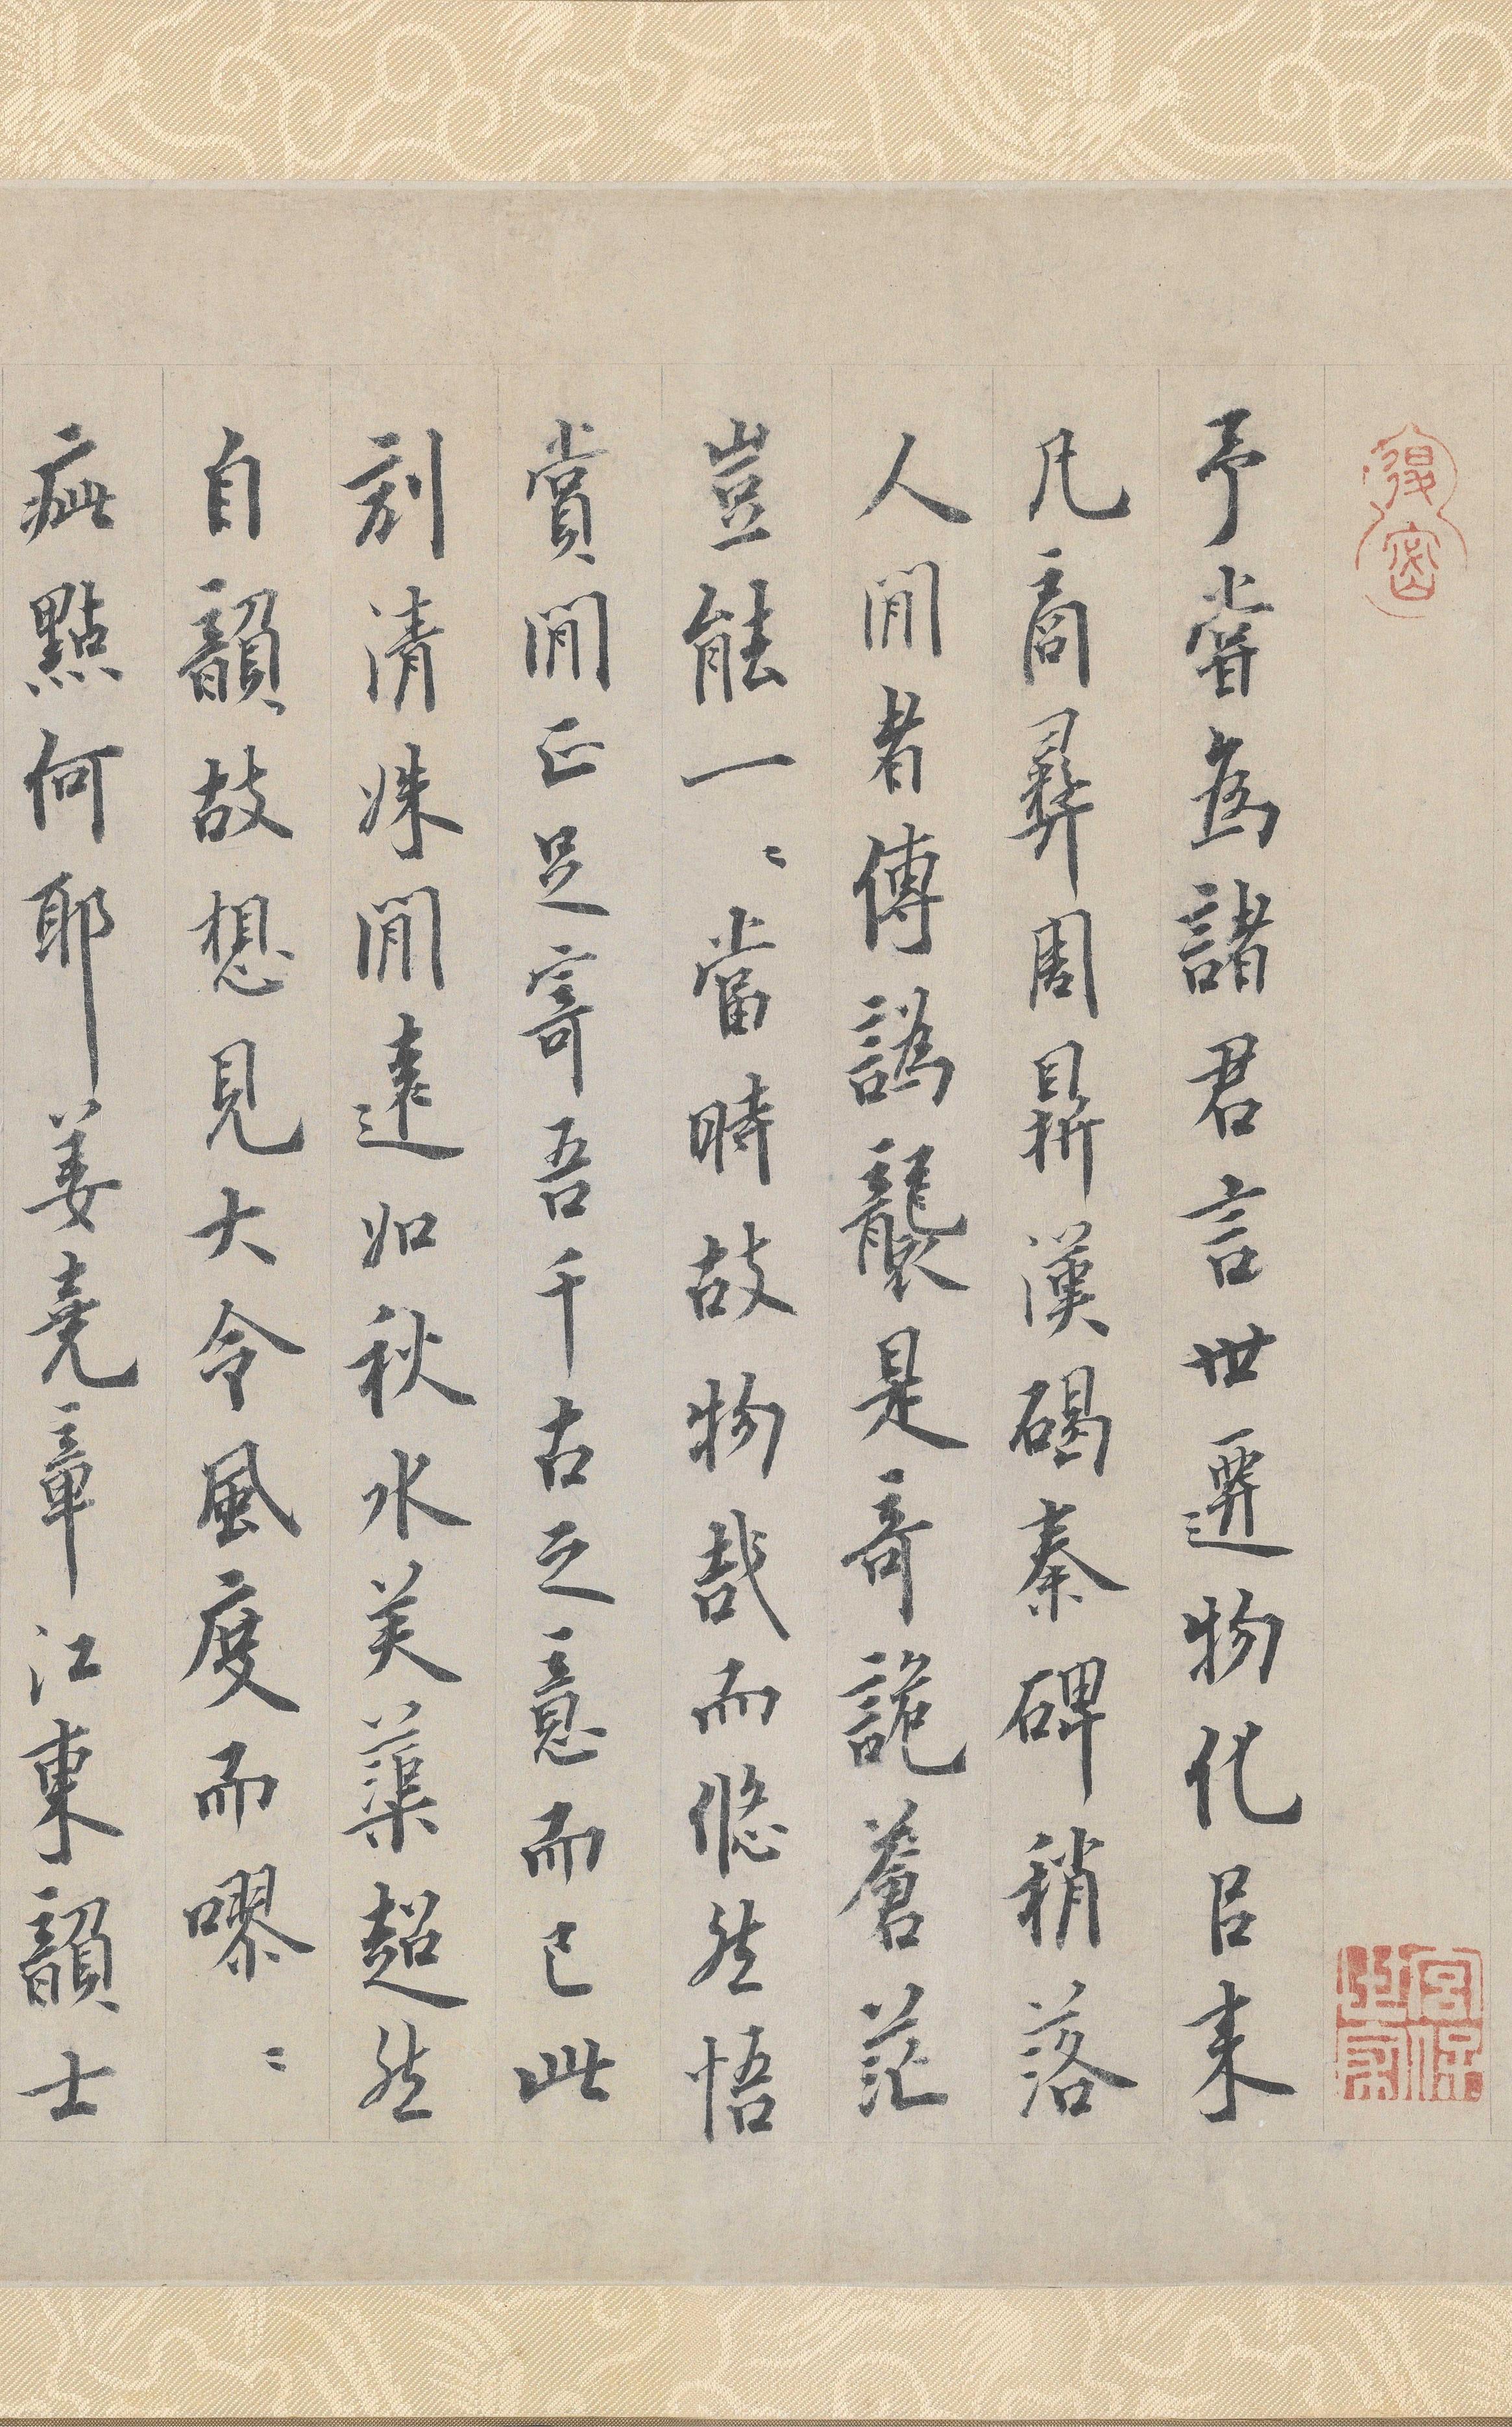 予嘗爲諸君言世遷物化㠯来
凡商彝周鼎漢碣秦碑稍落
人閒者傳譌襲是奇詭蒼茫
豈能一〻當時故物哉而悠然悟
賞閒正足寄吾千古之意而已此
刻清姝閒遠如秋水芙蕖超然
自韻故想見大令風度而嘐〻
疵點何耶姜堯章江東韻士